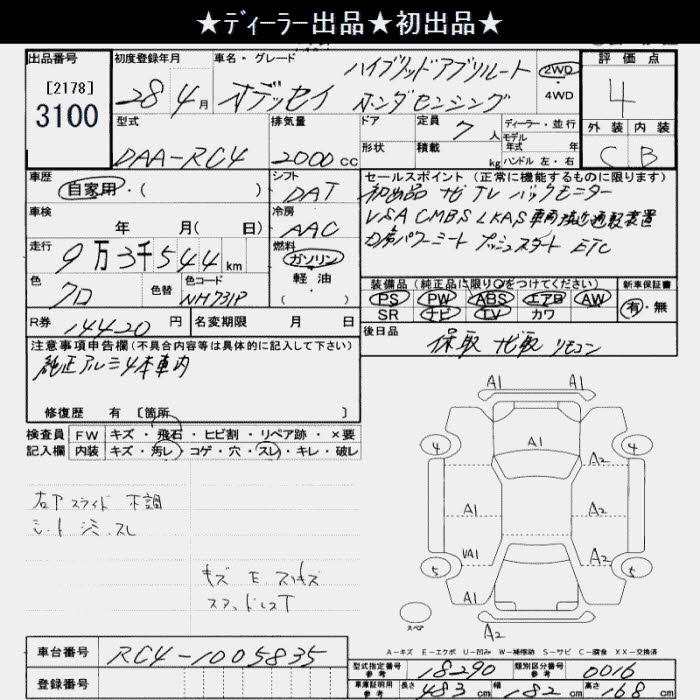 ★ディーラー出品★初出品★
出品番号
[2178]
3100
初度登録年月
28年4月
車名・グレード
オデッセイ ハイブリッドアブソルート ホンダセンシング
2WD
・
4WD
評価点
4
外装 内装
C B
型式
DAA-RC4
排気量
2000cc
ドア
形状
定員
7人
積載
kg
ディーラー・並行
モデル
年式 年
ハンドル 左・右
車歴
自家用・( )
シフト
DAT
セールスポイント(正常に機能するものに限ります)
初出品 ナビ TV バックモニター
VSA CMBS LKAS 車両接近通報装置
D席パワーシート プッシュスタート ETC
車検
年 月( 日)
冷房
AAC
走行
9万3千544km
燃料
ガソリン
軽油
( )
色
クロ
色替
色コード
NH731P
装備品(純正品に限り○をつけてください)
PS PW ABS エアB AW
SR ナビ TV カワ
新車保証書
有・無
R券
14420円
名変期限 月 日
後日品
保取 ナビ取 リモコン
注意事項申告欄(不具合内容等は具体的に記入して下さい)
純正アルミ4本車内
修復歴 有 [箇所 ]
検査員
記入欄
FW キズ・飛石・ヒビ割・リペア跡・×要
内装 キズ・汚レ・コゲ・穴・スレ・キレ・破レ
右ドア スライド 不調
シート シミ・スレ
キズ E スリキズ
スタッドレスT
A1 A1
4 A1 4
A2
A2
VA1 A2
5 5
A1 A1
A2
スペア
A-キズ E-エクボ U-凹み W-補修跡 S-サビ C-腐食 XX-交換済
車台番号
RC4-1005835
登録番号
型式指定番号
参考
18290
類別区分番号
参考
0016
車庫証明用
参考
長さ 483cm 幅 182cm 高さ 168cm